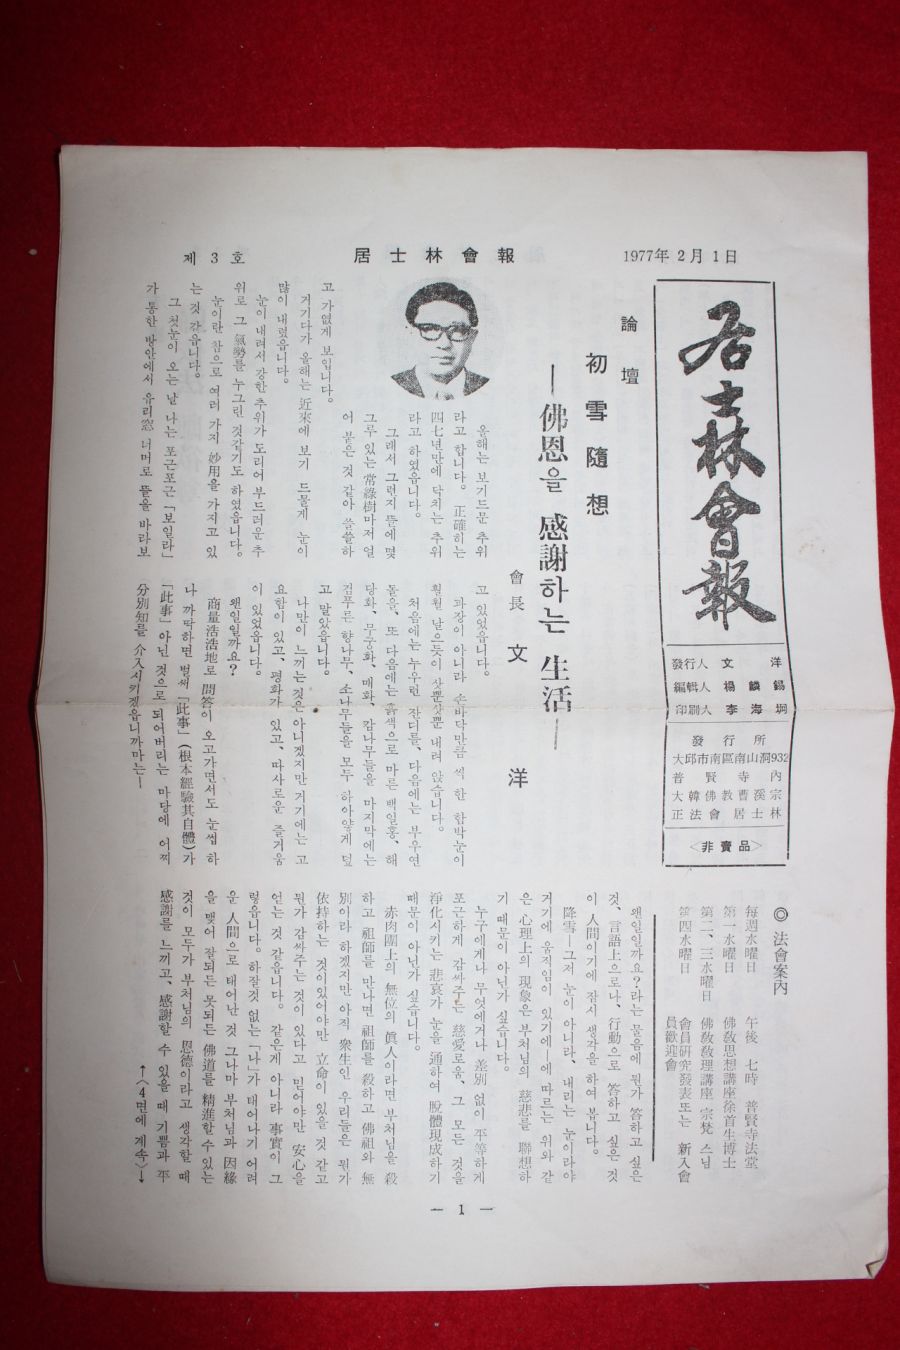 제 3 호
居士林會報
1977年 2月 1日
居士林會報
發行人 文 洋
編輯人 楊麟錫
印刷人 李海垌
發行所
大邱市南區南山洞932
普賢寺內
大韓佛教曹溪宗
正法會 居士林
<非賣品>
◎ 法會案內
每週水曜日 午後 七時 普賢寺法堂
第一水曜日 佛敎思想講座徐首生博士
第二、三水曜日 佛敎敎理講座 宗梵 스님
第四水曜日 會員硏究發表또는 新入會
員歡迎會
論壇
初雪隨想
—佛恩을 感謝하는 生活—
會長 文 洋
올해는 보기드문 추위
라고 합니다。正確히는
四七년만에 닥치는 추위
라고 하였읍니다。
그래서 그런지 뜰에 몇
그루 있는 常綠樹마저 얼
어 붙은 것 같아 쓸쓸하
고 가엾게 보입니다。
거기다가 올해는 近來에 보기 드물게 눈이
많이 내렸읍니다。
눈이 내려서 강한 추위가 도리어 부드러운 추
위로 그 氣勢를 누그린 것같기도 하였읍니다。
눈이란 참으로 여러 가지 妙用을 가지고 있
는 것 같읍니다。
그 첫눈이 오는 날 나는 포근포근 「보일라」
가 통한 방안에서 유리窓 너머로 뜰을 바라보
고 있었읍니다。
과장이 아니라 손바닥만큼 씩 한 함박눈이
훨훨 날으듯이 삿뿐삿뿐 내려 앉습니다。
처음에는 누우런 잔디를、다음에는 부우연
돌을、또 다음에는 흙색으로 마른 백일홍、해
당화、무궁화、매화、감나무들을 마지막에는
검푸른 향나무、소나무들을 모두 하아얗게 덮
고 말았읍니다。
나만이 느끼는 것은 아니겠지만 거기에는 고
요함이 있고、평화가 있고、따사로운 즐거움
이 있었읍니다。
왠일일까요?
商量浩浩地로 問答이 오고가면서도 눈썹 하
나 까딱하면 벌써 「此事」(根本經驗其自體)가
「此事」아닌 것으로 되어버리는 마당에 어찌
分別知를 介入시키겠읍니까마는—
왠일일까요?라는 물음에 뭔가 答하고 싶은
것、言語上으로나、行動으로 答하고 싶은 것
이 人間이기에 잠시 생각을 하여 봅니다。
降雪—그저 눈이 아니라、내리는 눈이라야
거기에 움직임이 있기에—에 따르는 위와 같
은 心理上의 現象은 부처님의 慈悲를 聯想하
기 때문이 아닌가 싶습니다。
누구에게나 무엇에거나 差別 없이 平等하게
포근하게 감싸주는 慈愛로움、그 모든 것을
淨化시키는 悲哀가 눈을 通하여 脫體現成하기
때문이 아닌가 싶습니다。
赤肉團上의 無位의 眞人이라면 부처님을 殺
하고 祖師를 만나면 祖師를 殺하고 佛祖와 無
別이라 하겠지만 아직 衆生인 우리들은 뭔가
依持하는 것이있어야만 立命이 있을 것 같고
뭔가 감싸주는 것이 있다고 믿어야만 安心을
얻는 것 같읍니다。같은게 아니라 事實이 그
렇읍니다。하잘것 없는 「나」가 태어나기 어려
운 人間으로 태어난 것 그나마 부처님과 因緣
을 맺어 잘되든 못되든 佛道를 精進할 수 있는
것이 모두가 부처님의 恩德이라고 생각할 때
感謝를 느끼고、感謝할 수 있을 때 기쁨과 平
↑〈4面에 계속〉↓
— 1 —